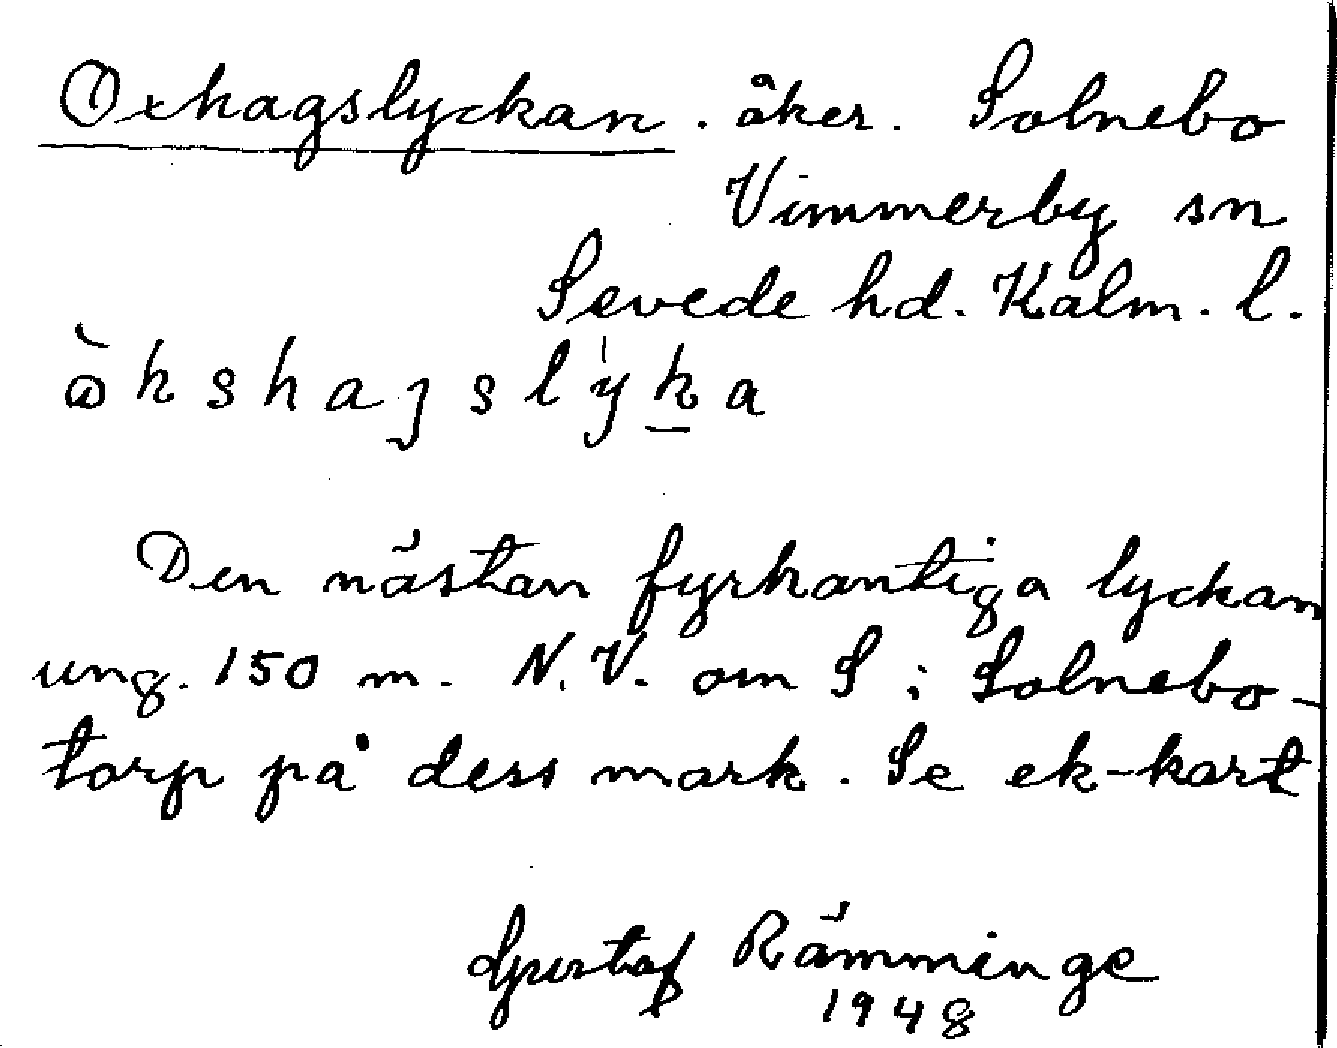 Oxhagslyckan. åker. Solnebo
Vimmerby sn
Sevede hd. Kalm. l.
ꝏ̀kshaȷslýka
Den nästan fyrkantiga lyckan
ung. 150 m. N.V. om S i Solnebo-
torp på dess mark. Se ek-kart
Gustaf Rämminge
1948